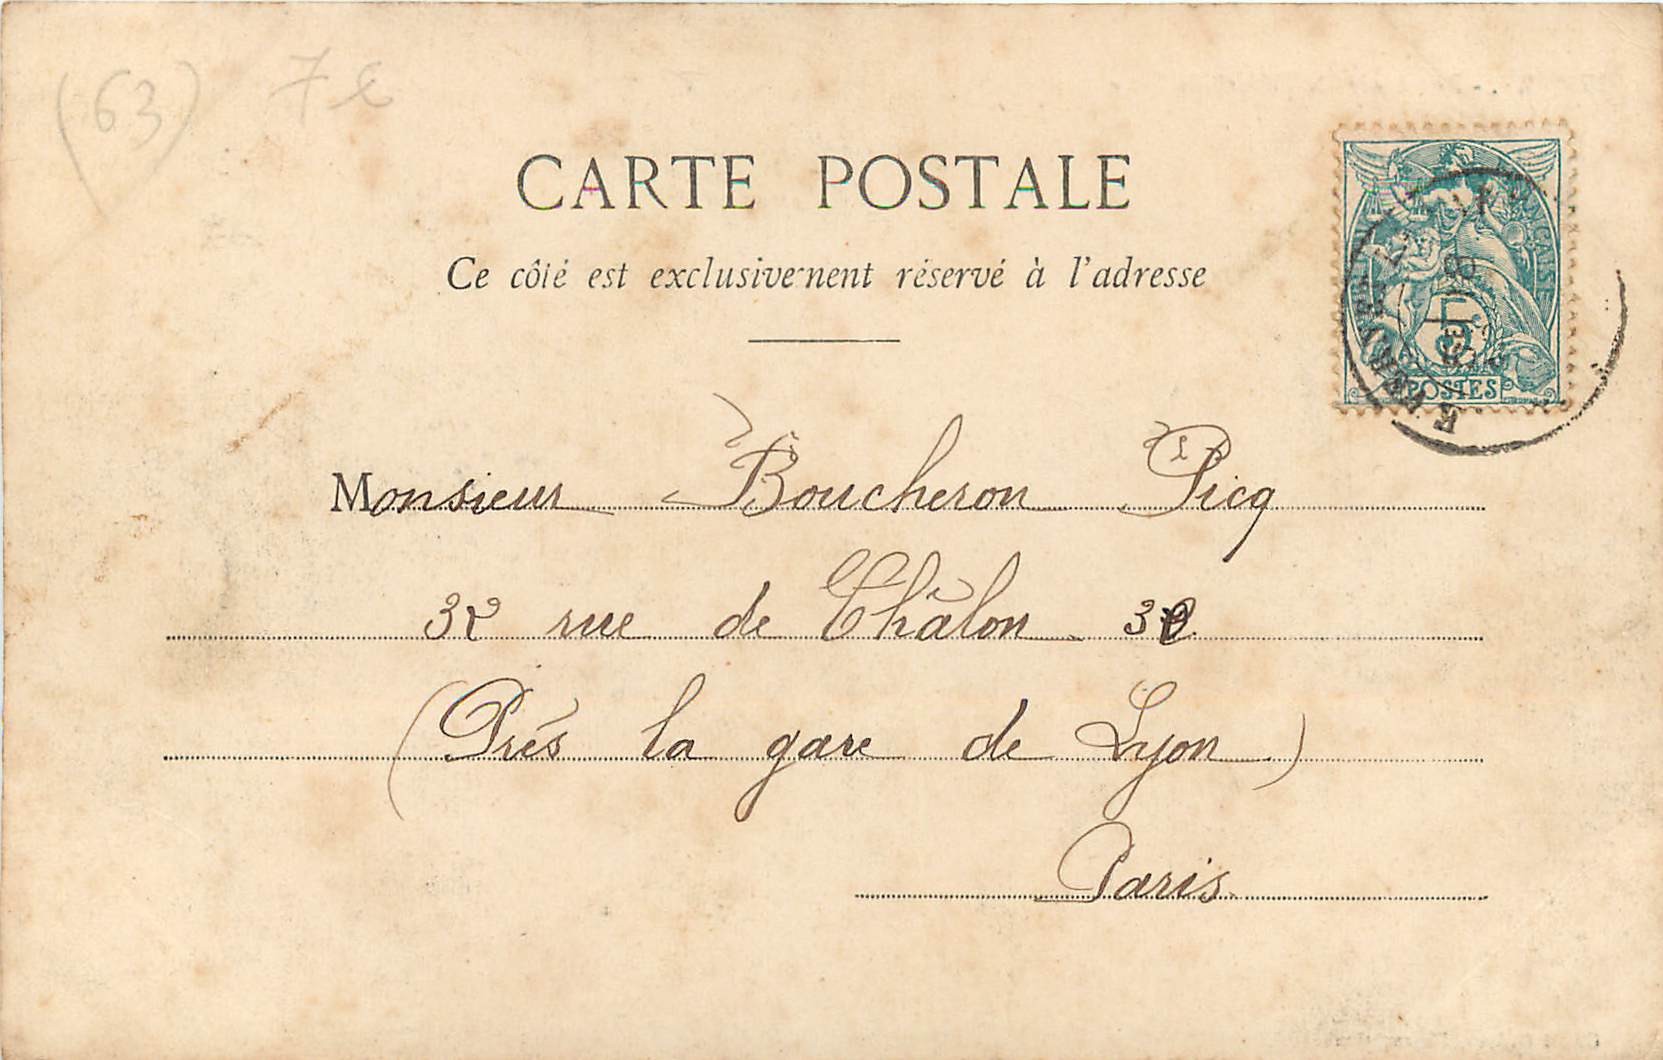 (63) 7e
CARTE POSTALE
Ce côté est exclusivement réservé à l'adresse
POSTES
Monsieur Boucheron Picq
32 rue de Châlon 32
(Près la gare de Lyon)
Paris